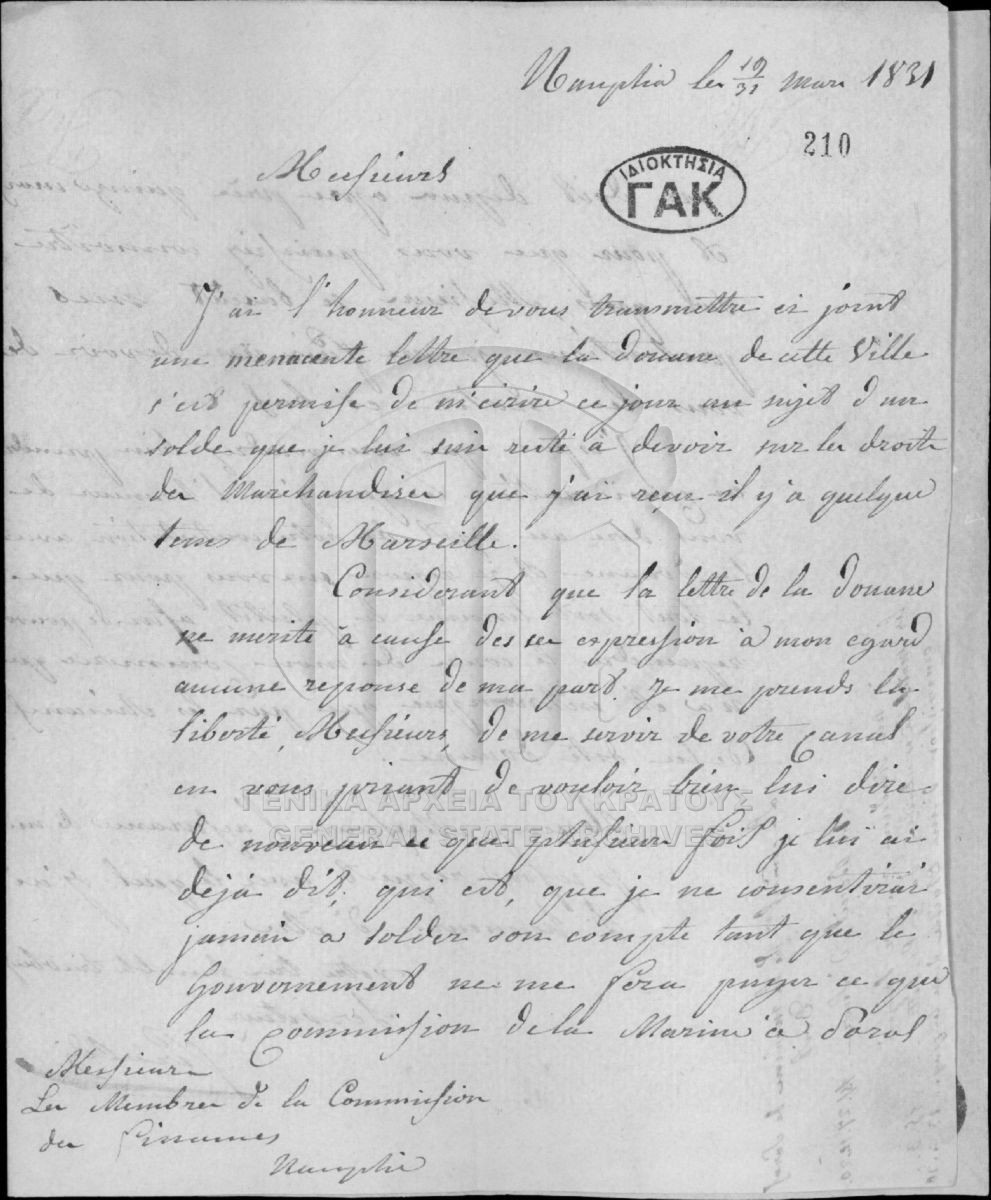 Nauplia les 19/31 Mars 1831
210
ΙΔΙΟΚΤΗΣΙΑ
ΓΑΚ
Messieurs
J'ai l'honneur de vous transmettre ci joint
une menacente lettre que la douane de cette Ville
s'est permise de m'ecrire ce jour au sujet d'un
solde que je lui suis resté à devoir sur les droits
des Marchandises que j'ai reçu il y'a quelque
tems de Marseille.
Considerant que la lettre de la douane
ne merite à cause des ses expression à mon egard
aucune reponse de ma part, je me prends la
liberté, Messieurs, de me servir de votre Canal
en vous priant de vouloir bien lui dire
de nouveau ce que plusieurs fois je lui ai
dejà dit, qui est, que je ne consentirai
jamais a solder son compte tant que le
Gouvernement ne me fera payer ce que
la Commission de la Marine à Poros
Messieurs
Les Membres de la Commission
des Finances
Nauplie
ΓΕΝΙΚΑ ΑΡΧΕΙΑ ΤΟΥ ΚΡΑΤΟΥΣ
GENERAL STATE ARCHIVES